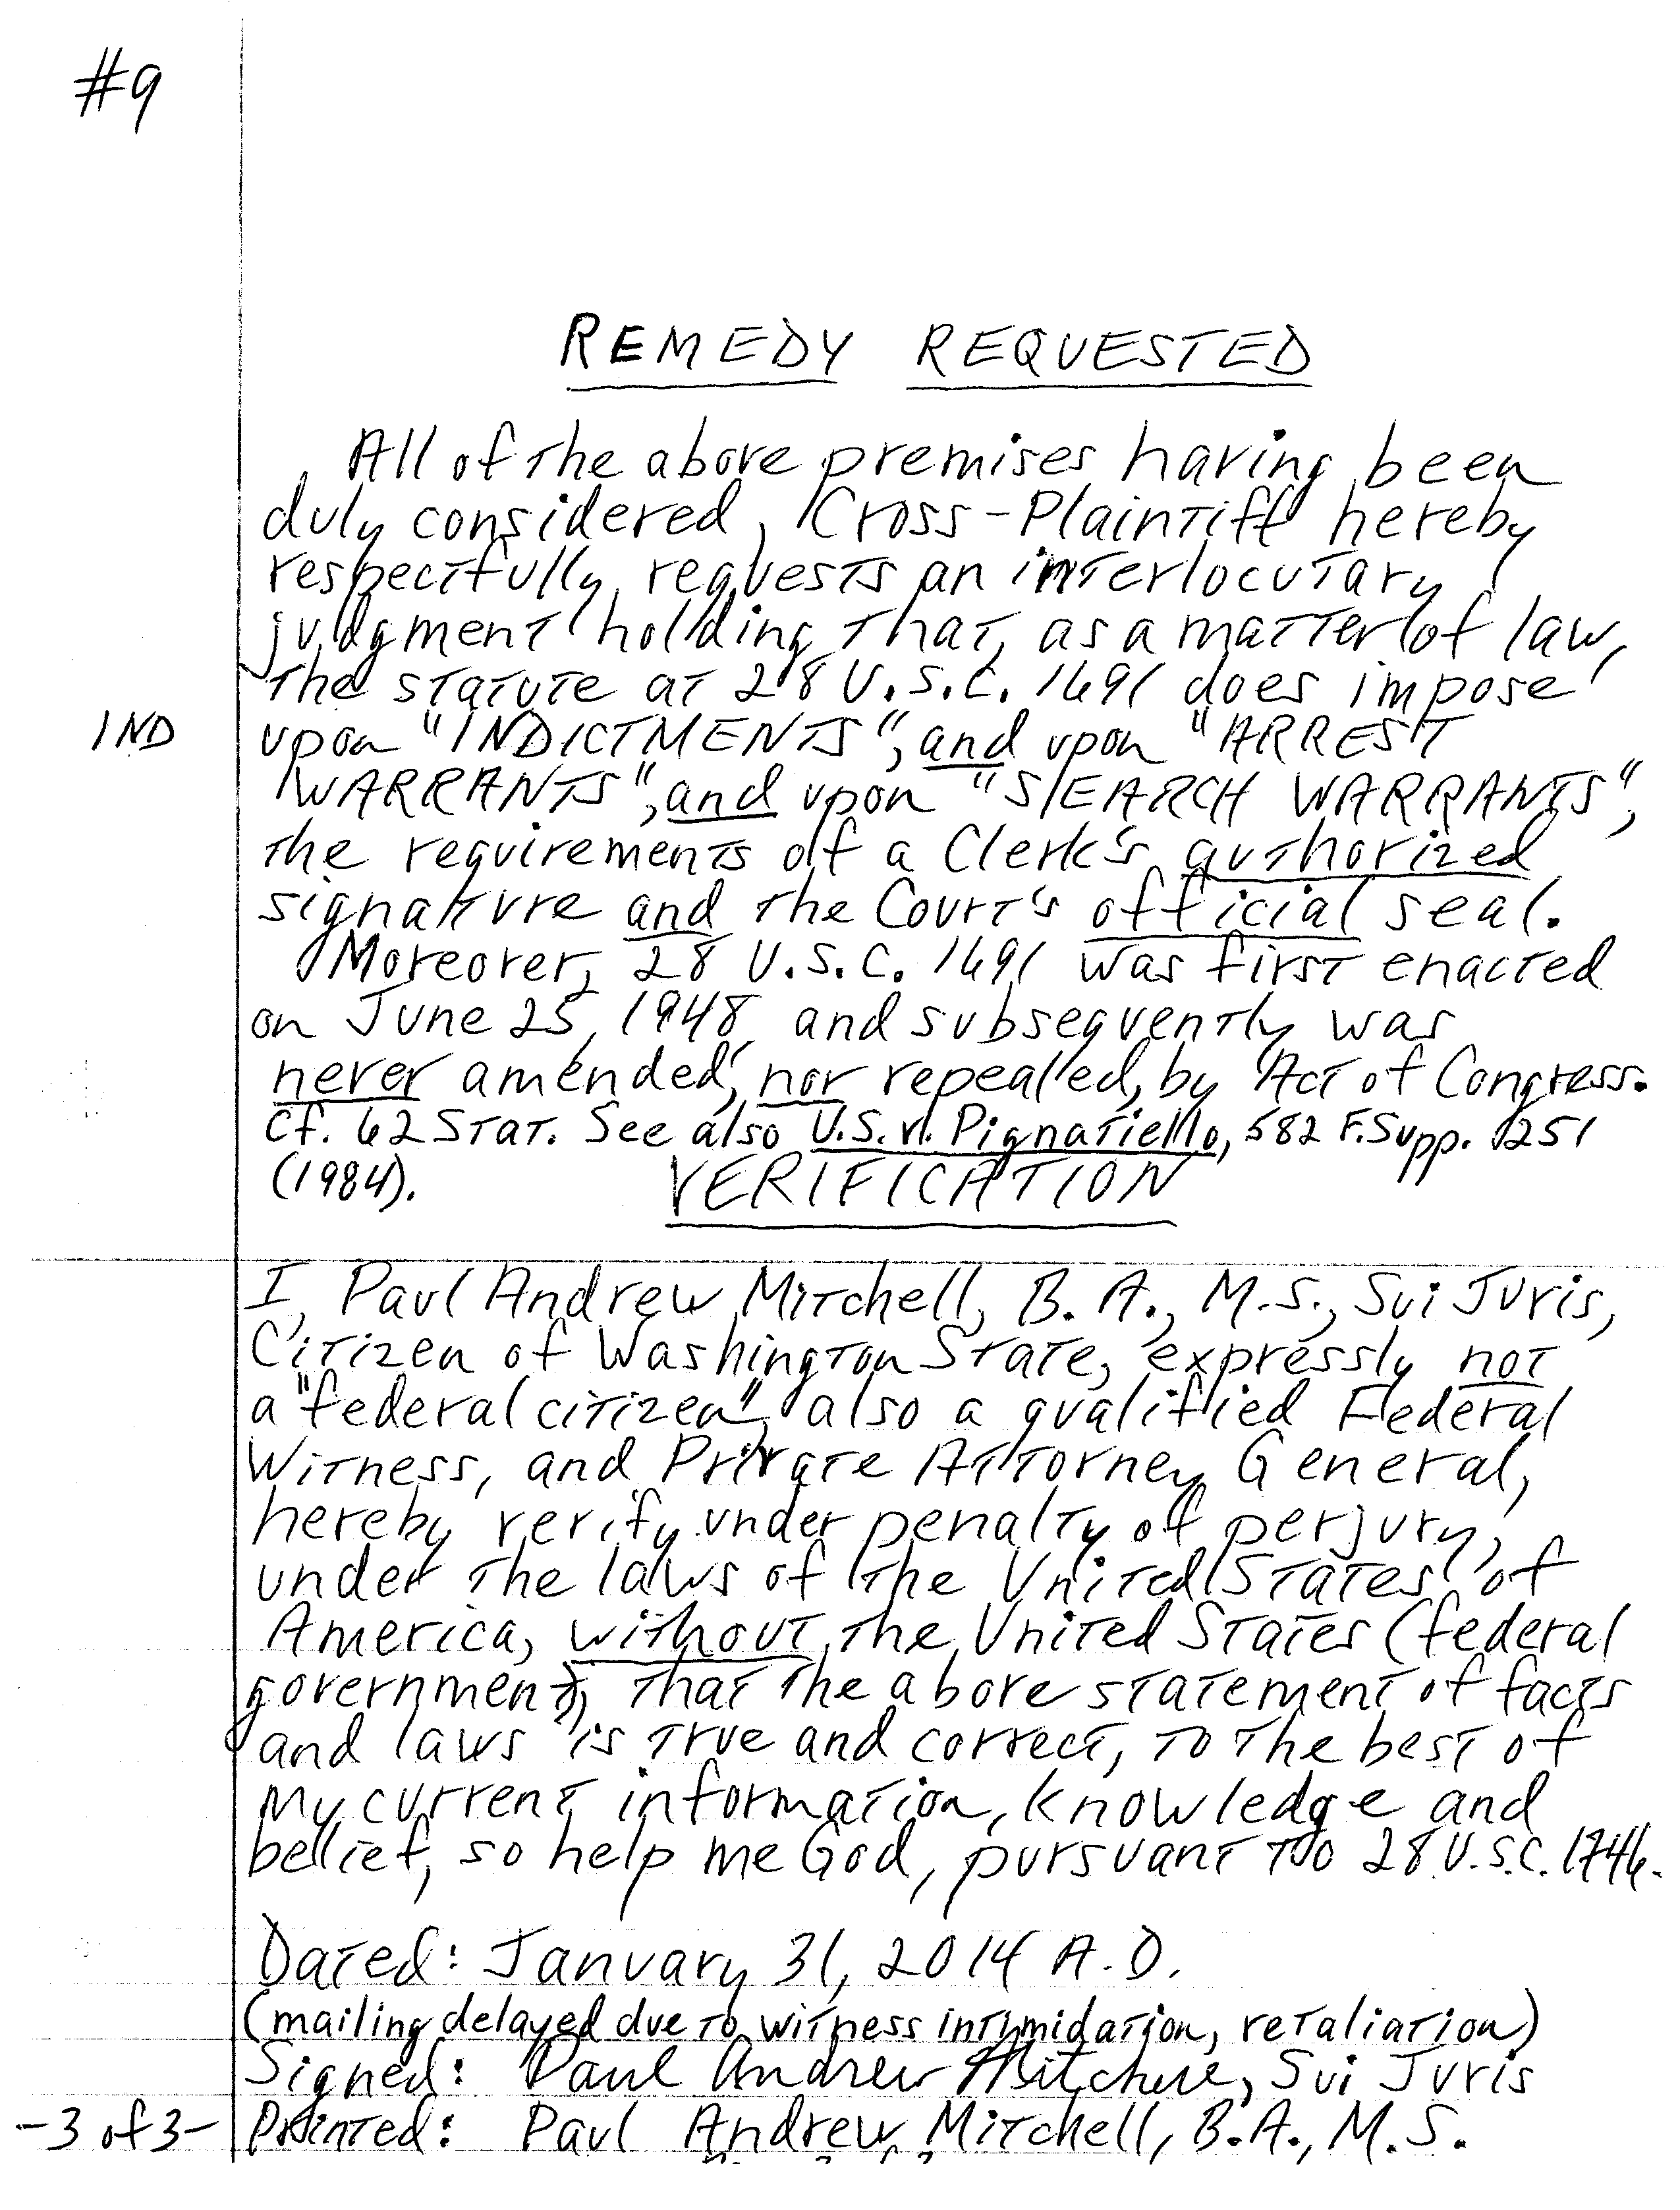 #9
REMEDY REQUESTED
All of the above premises having been
duly considered, Cross-Plaintiff hereby
respectfully requests an interlocutary
judgment holding that, as a matter of law,
the statute at 28 U.S.C. 1691 does impose
IND
upon "INDICTMENTS", and upon "ARREST
WARRANTS", and upon "SEARCH WARRANTS",
the requirements of a Clerk's authorized
signature and the Court's official seal.
Moreover, 28 U.S.C. 1691 was first enacted
on June 25, 1948, and subsequently was
never amended, nor repealed, by Act of Congress.
Cf. 62 Stat. See also U.S. v. Pignatiello, 582 F.Supp. 1251
(1984).
VERIFICATION
I, Paul Andrew Mitchell, B.A., M.S., Sui Juris,
Citizen of Washington State, expressly not
a "federal citizen", also a qualified Federal
Witness, and Private Attorney General,
hereby verify under penalty of perjury,
under the laws of the United States of
America, without the United States (federal
government), that the above statement of facts
and laws is true and correct, to the best of
My current information, knowledge and
belief, so help me God, pursuant to 28 U.S.C. 1746.
Dated: January 31, 2014 A.D.
(mailing delayed due to witness intimidation, retaliation)
Signed: Paul Andrew Mitchell, Sui Juris
-3 of 3- Printed: Paul Andrew Mitchell, B.A., M.S.